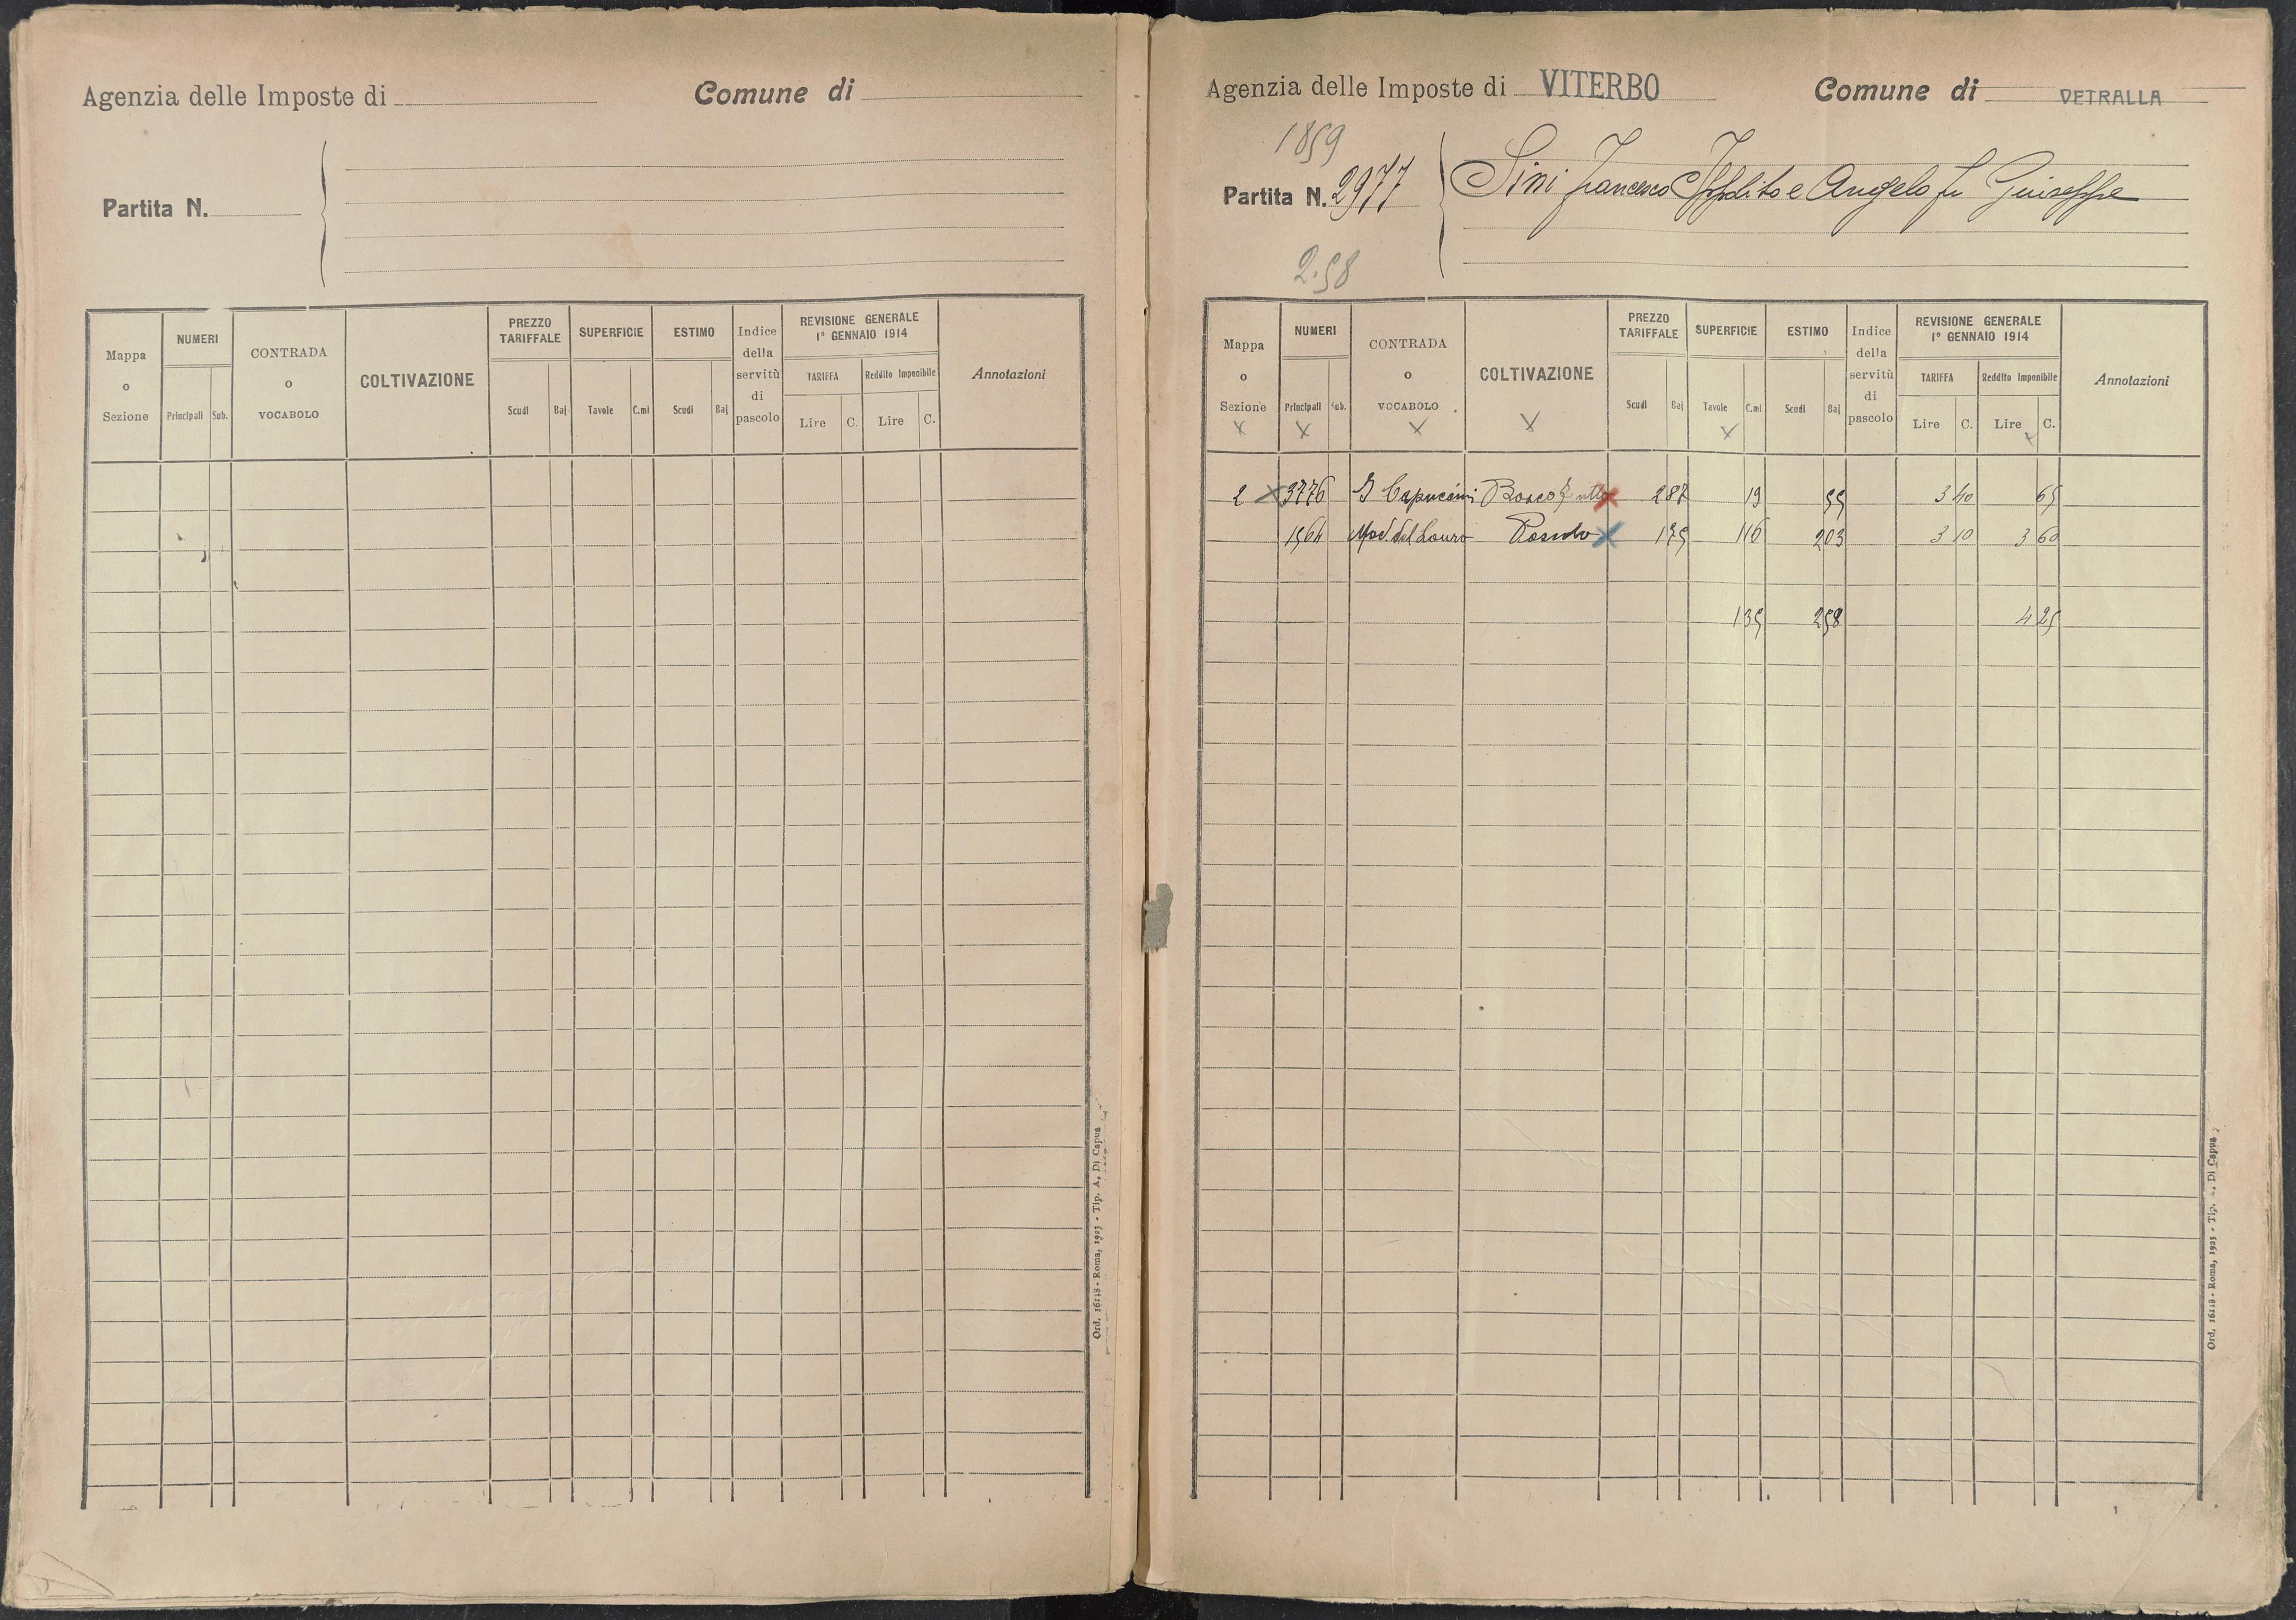 Agenzia delle Imposte di
Comune di
Partita N.
Mappa o Sezione
NUMERI
Principali Sub.
CONTRADA o VOCABOLO
COLTIVAZIONE
PREZZO TARIFFALE
Scudi Baj
SUPERFICIE
Tavole C.mi
ESTIMO
Scudi Baj
Indice della servitù di pascolo
REVISIONE GENERALE
1° GENNAIO 1914
TARIFFA Reddito Imponibile
Lire C. Lire C.
Annotazioni
Ord. 16118 - Roma, 1923 - Tip. A. Di Capua
Agenzia delle Imposte di VITERBO
Comune di VETRALLA
1859
Partita N. 2977
Sini Francesco Ippolito e Angelo fu Giuseppe
2.58
Mappa o Sezione
NUMERI
Principali Sub.
CONTRADA o VOCABOLO
COLTIVAZIONE
PREZZO TARIFFALE
Scudi Baj
SUPERFICIE
Tavole C.mi
ESTIMO
Scudi Baj
Indice della servitù di pascolo
REVISIONE GENERALE
1° GENNAIO 1914
TARIFFA Reddito Imponibile
Lire C. Lire C.
Annotazioni
X X X X X X
2 X 3776 I Capuccini Bosco X 287 19 55 3 40 65
1564 Mad. del Lauro X 175 116 203 3 10 3 60
135 258 4 25
Ord. 16118 - Roma, 1923 - Tip. A. Di Capua